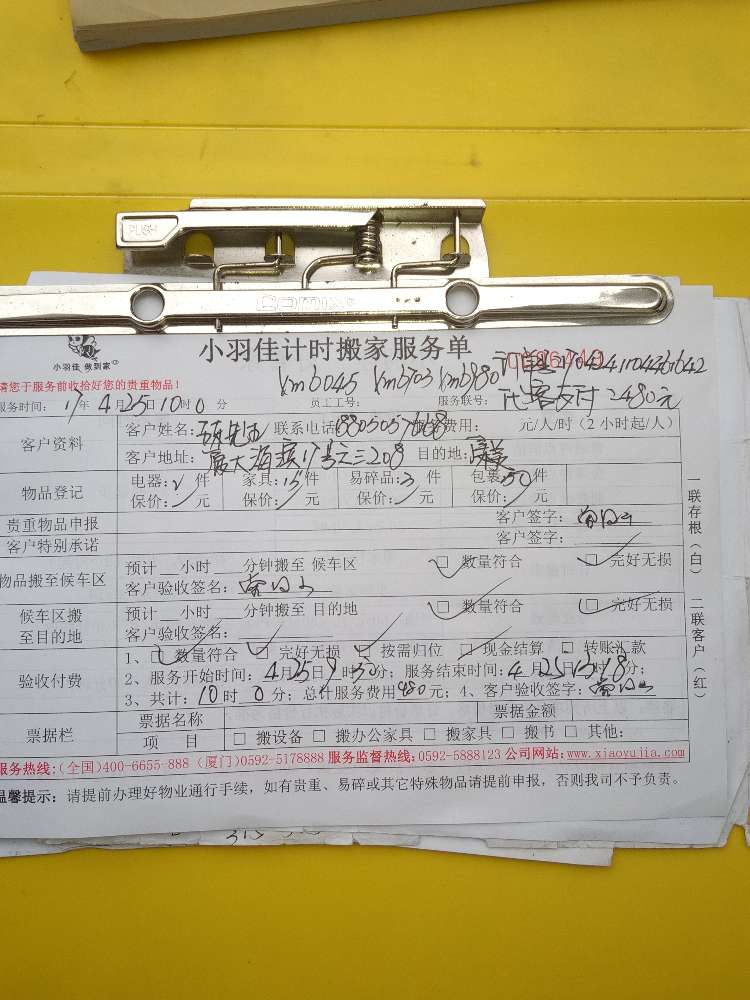 PUSH
小羽佳 做到家
小羽佳计时搬家服务单
请您于服务前收拾好您的贵重物品！
xm6045 xm6703 xm6980
代客支付2480元
服务时间：17年4月25日10时0分 员工工号： 服务联号：
客户资料
客户姓名： 联系电话 费用： 元/人/时（2小时起/人）
客户地址：厦大海滨17号之三208 目的地：
物品登记
电器：2件 家具：15件 易碎品：3件 包裹：50件
保价： 元 保价： 元 保价： 元 保价： 元
贵重物品申报 客户签字：
客户特别承诺 客户签字：
物品搬至候车区
预计 小时 分钟搬至 候车区 □ 数量符合 □ 完好无损
客户验收签名：
候车区搬至目的地
预计 小时 分钟搬至 目的地 □ 数量符合 □ 完好无损
客户验收签名：
验收付费
1、□ 数量符合 □ 完好无损 □ 按需归位 □ 现金结算 □ 转账汇款
2、服务开始时间：4月25日9时30分；服务结束时间：4月25日13时18分；
3、共计：10时0分；总计服务费用980元；4、客户验收签字：
票据栏
票据名称 票据金额
项 目 □ 搬设备 □ 搬办公家具 □ 搬家具 □ 搬书 □ 其他：
一联存根（白） 二联客户（红）
服务热线：(全国)400-6655-888 (厦门)0592-5178888 服务监督热线：0592-5888123 公司网站：www.xiaoyujia.com
温馨提示：请提前办理好物业通行手续，如有贵重、易碎或其它特殊物品请提前申报，否则我司不予负责。